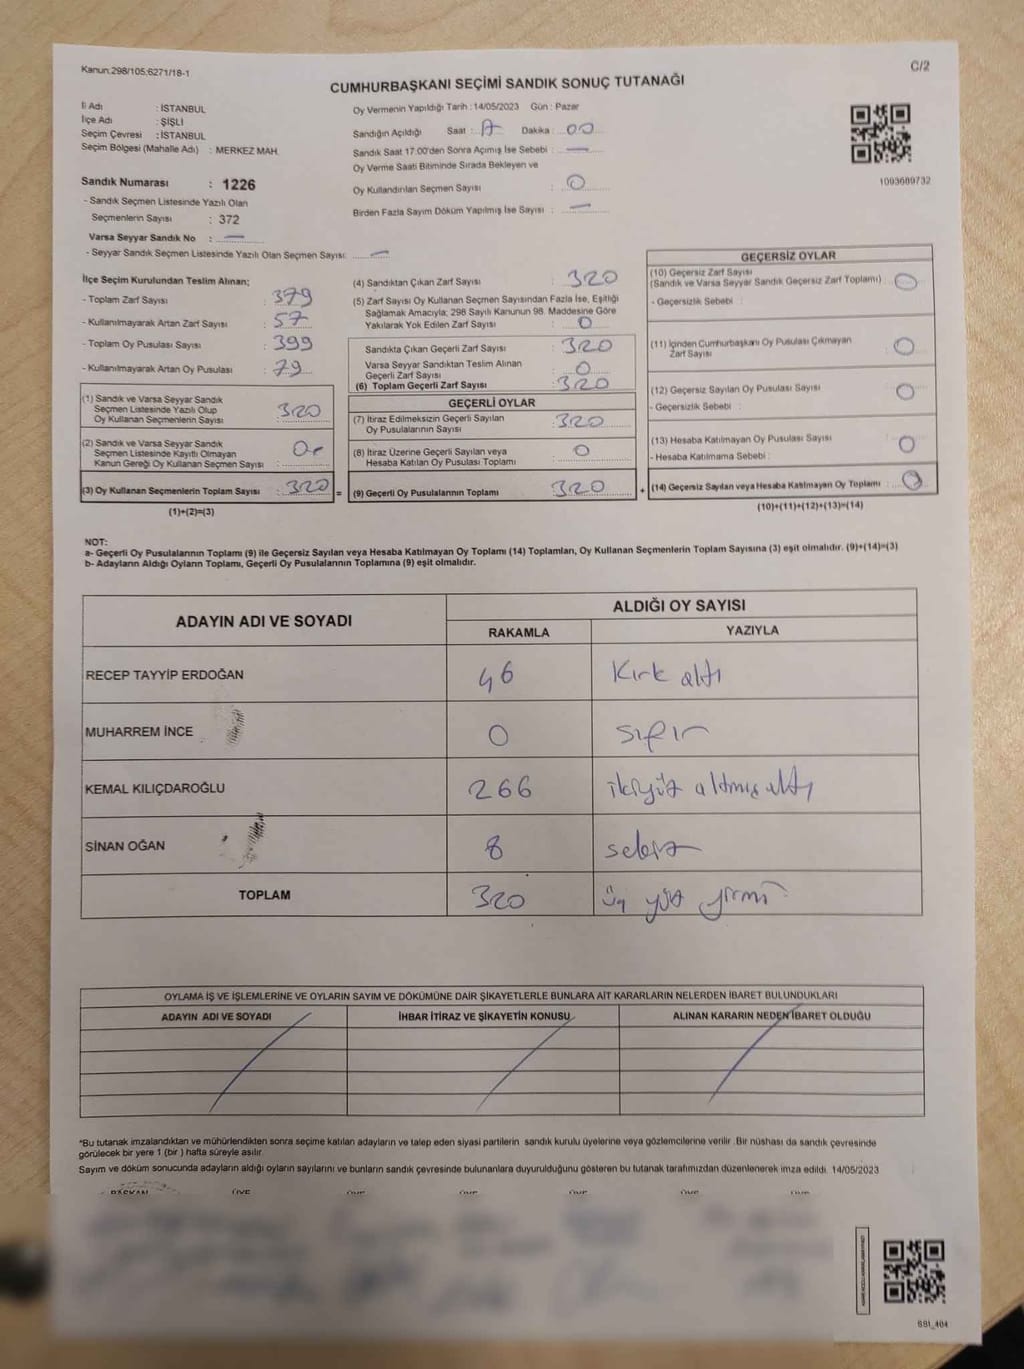 Kanun:298/105:6271/18-1
C/2
CUMHURBAŞKANI SEÇİMİ SANDIK SONUÇ TUTANAĞI
İl Adı : İSTANBUL
İlçe Adı : ŞİŞLİ
Seçim Çevresi : İSTANBUL
Seçim Bölgesi (Mahalle Adı) : MERKEZ MAH.
Sandık Numarası : 1226
- Sandık Seçmen Listesinde Yazılı Olan
Seçmenlerin Sayısı : 372
Varsa Seyyar Sandık No : —
- Seyyar Sandık Seçmen Listesinde Yazılı Olan Seçmen Sayısı: —
Oy Vermenin Yapıldığı Tarih : 14/05/2023 Gün : Pazar
Sandığın Açıldığı Saat : 17 Dakika : 00
Sandık Saat 17:00'den Sonra Açımış İse Sebebi : —
Oy Verme Saati Bitiminde Sırada Bekleyen ve
Oy Kullandırılan Seçmen Sayısı : 0
Birden Fazla Sayım Döküm Yapılmış İse Sayısı : —
1093689732
İlçe Seçim Kurulundan Teslim Alınan;
- Toplam Zarf Sayısı : 379
- Kullanılmayarak Artan Zarf Sayısı : 57
- Toplam Oy Pusulası Sayısı : 399
- Kullanılmayarak Artan Oy Pusulası : 79
(1) Sandık ve Varsa Seyyar Sandık
Seçmen Listesinde Yazılı Olup
Oy Kullanan Seçmenlerin Sayısı : 320
(2) Sandık ve Varsa Seyyar Sandık
Seçmen Listesinde Kayıtlı Olmayan
Kanun Gereği Oy Kullanan Seçmen Sayısı : 0
(3) Oy Kullanan Seçmenlerin Toplam Sayısı : 320 =
(1)+(2)=(3)
(4) Sandıktan Çıkan Zarf Sayısı : 320
(5) Zarf Sayısı Oy Kullanan Seçmen Sayısından Fazla İse, Eşitliği
Sağlamak Amacıyla; 298 Sayılı Kanunun 98. Maddesine Göre
Yakılarak Yok Edilen Zarf Sayısı : 0
Sandıkta Çıkan Geçerli Zarf Sayısı : 320
Varsa Seyyar Sandıktan Teslim Alınan
Geçerli Zarf Sayısı : 0
(6) Toplam Geçerli Zarf Sayısı : 320
GEÇERLİ OYLAR
(7) İtiraz Edilmeksizin Geçerli Sayılan
Oy Pusulalarının Sayısı : 320
(8) İtiraz Üzerine Geçerli Sayılan veya
Hesaba Katılan Oy Pusulası Toplamı : 0
(9) Geçerli Oy Pusulalarının Toplamı : 320 +
GEÇERSİZ OYLAR
(10) Geçersiz Zarf Sayısı
(Sandık ve Varsa Seyyar Sandık Geçersiz Zarf Toplamı) : 0
- Geçersizlik Sebebi :
(11) İçinden Cumhurbaşkanı Oy Pusulası Çıkmayan
Zarf Sayısı : 0
(12) Geçersiz Sayılan Oy Pusulası Sayısı : 0
- Geçersizlik Sebebi :
(13) Hesaba Katılmayan Oy Pusulası Sayısı : 0
- Hesaba Katılmama Sebebi :
(14) Geçersiz Sayılan veya Hesaba Katılmayan Oy Toplamı : 0
(10)+(11)+(12)+(13)=(14)
NOT:
a- Geçerli Oy Pusulalarının Toplamı (9) ile Geçersiz Sayılan veya Hesaba Katılmayan Oy Toplamı (14) Toplamları, Oy Kullanan Seçmenlerin Toplam Sayısına (3) eşit olmalıdır. (9)+(14)=(3)
b- Adayların Aldığı Oyların Toplamı, Geçerli Oy Pusulalarının Toplamına (9) eşit olmalıdır.
ADAYIN ADI VE SOYADI
ALDIĞI OY SAYISI
RAKAMLA YAZIYLA
RECEP TAYYİP ERDOĞAN 46 Kırk altı
MUHARREM İNCE 0 sıfır
KEMAL KILIÇDAROĞLU 266 ikiyüz altmış altı
SİNAN OĞAN 8 sekiz
TOPLAM 320 üç yüz yirmi
OYLAMA İŞ VE İŞLEMLERİNE VE OYLARIN SAYIM VE DÖKÜMÜNE DAİR ŞİKAYETLERLE BUNLARA AİT KARARLARIN NELERDEN İBARET BULUNDUKLARI
ADAYIN ADI VE SOYADI İHBAR İTİRAZ VE ŞİKAYETİN KONUSU ALINAN KARARIN NEDEN İBARET OLDUĞU
*Bu tutanak imzalandıktan ve mühürlendikten sonra seçime katılan adayların ve talep eden siyasi partilerin sandık kurulu üyelerine veya gözlemcilerine verilir. Bir nüshası da sandık çevresinde
görülecek bir yere 1 (bir ) hafta süreyle asılır.
Sayım ve döküm sonucunda adayların aldığı oyların sayılarını ve bunların sandık çevresinde bulunanlara duyurulduğunu gösteren bu tutanak tarafımızdan düzenlenerek imza edildi. 14/05/2023
BAŞKAN ÜYE ÜYE ÜYE ÜYE ÜYE ÜYE